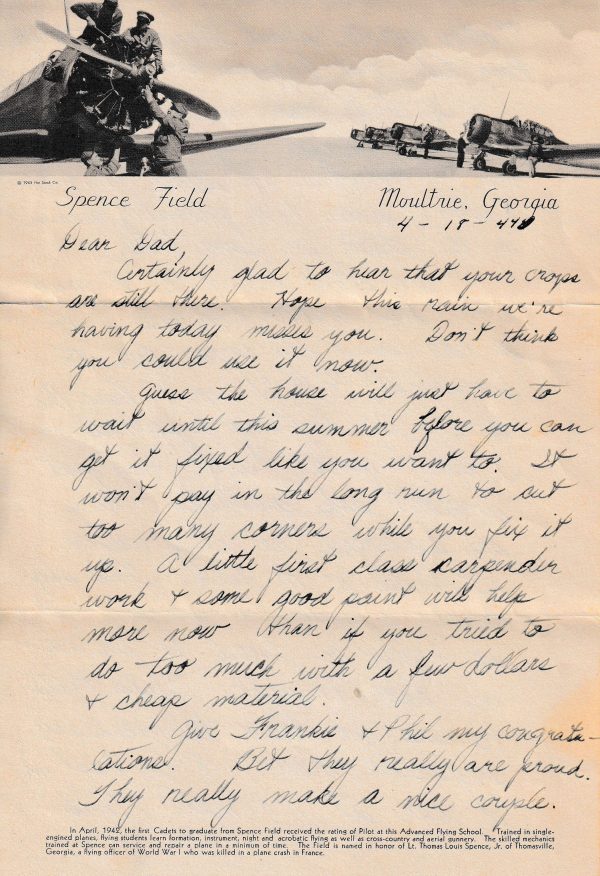 © 1943 Hat Sook Co.
Spence Field
Moultrie, Georgia
4 - 18 - 44
Dear Dad,
Certainly glad to hear that your crops
are still there. Hope this rain we're
having today misses you. Don't think
you could use it now.
Guess the house will just have to
wait until this summer before you can
get it fixed like you want to. It
won't pay in the long run to cut
too many corners while you fix it
up. A little first class carpender
work & some good paint will help
more now than if you tried to
do too much with a few dollars
& cheap material.
Give Frankie & Phil my congratu-
lations. Bet they really are proud.
They really make a nice couple.
In April, 1942, the first Cadets to graduate from Spence Field received the rating of Pilot at this Advanced Flying School. Trained in single-
engined planes, flying students learn formation, instrument, night and acrobatic flying as well as cross-country and aerial gunnery. The skilled mechanics
trained at Spence can service and repair a plane in a minimum of time. The Field is named in honor of Lt. Thomas Louis Spence, Jr. of Thomasville,
Georgia, a flying officer of World War I who was killed in a plane crash in France.